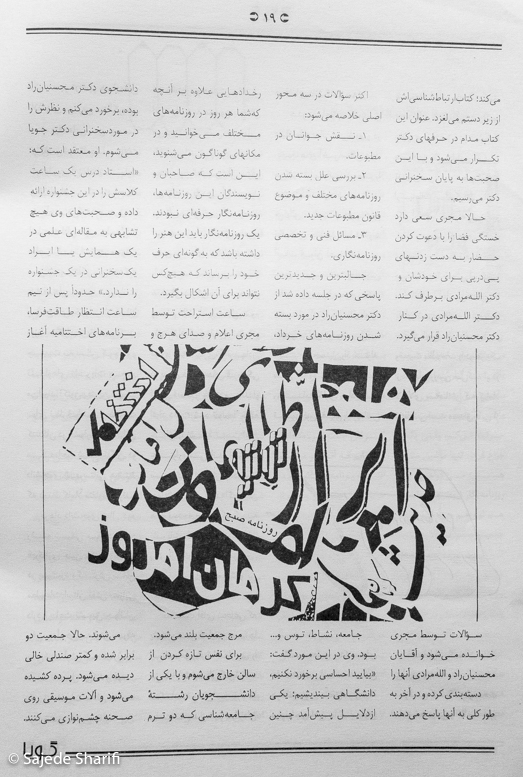 ۱۹
می‌کند؛ کتاب ارتباط‌شناسی‌اش
از زیر دستم می‌لغزد. عنوان این
کتاب مدام در حرفهای دکتر
تکرار می‌شود و با این
صحبت‌ها به پایان سخنرانی
دکتر می‌رسیم.
حالا مجری سعی دارد
خستگی فضا را با دعوت کردن
حضار به دست زدنهای
پی‌درپی برای خودشان و
دکتر الله‌مرادی برطرف کند.
دکتر الله‌مرادی در کنار
دکتر محسنیان‌راد قرار می‌گیرد.
اکثر سؤالات در سه محور
اصلی خلاصه می‌شود:
۱ـ نقش جوانان در
مطبوعات.
۲ـ بررسی علل بسته شدن
روزنامه‌های مختلف و موضوع
قانون مطبوعات جدید.
۳ـ مسائل فنی و تخصصی
روزنامه‌نگاری.
جالبترین و جدیدترین
پاسخی که در جلسه داده شد از
دکتر محسنیان‌راد در مورد بسته
شدن روزنامه‌های خرداد،
رخدادهایی علاوه بر آنچه
که شما هر روز در روزنامه‌های
مختلف می‌خوانید و در
مکانهای گوناگون می‌شنوید،
این است که صاحبان و
نویسندگان این روزنامه‌ها،
روزنامه‌نگار حرفه‌ای نبودند.
یک روزنامه‌نگار باید این هنر را
داشته باشد که به گونه‌ای حرف
خود را برساند که هیچ‌کس
نتواند برای آن اشکال بگیرد.
ساعت استراحت توسط
مجری اعلام و صدای هرج و
دانشجوی دکتر محسنیان‌راد
بوده، برخورد می‌کنم و نظرش را
در مورد سخنرانی دکتر جویا
می‌شوم. او معتقد است که:
«استاد درس یک ساعت
کلاسش را در این جشنواره ارائه
داده و صحبت‌های وی هیچ
تشابهی به مقاله‌ای علمی در
یک همایش یا ایراد
یک سخنرانی در یک جشنواره
را ندارد.» حدوداً پس از نیم
ساعت انتظار طاقت‌فرسا،
برنامه‌های اختتامیه آغاز
انتخاب
ایران
روزنامه صبح
کرمان امروز
سؤالات توسط مجری
خوانده می‌شود و آقایان
محسنیان‌راد و الله‌مرادی آنها را
دسته‌بندی کرده و در آخر به
طور کلی به آنها پاسخ می‌دهند.
جامعه، نشاط، توس و...
بود. وی در این مورد گفت:
«بیایید احساسی برخورد نکنیم،
دانشگاهی بیندیشیم: یکی
از دلایل پیش‌آمد چنین
مرج جمعیت بلند می‌شود.
برای نفس تازه کردن از
سالن خارج می‌شوم و با یکی از
دانشجویان رشتهٔ
جامعه‌شناسی که دو ترم
می‌شوند. حالا جمعیت دو
برابر شده و کمتر صندلی خالی
دیده می‌شود. پرده کشیده
می‌شود و آلات موسیقی روی
صحنه چشم‌نوازی می‌کنند.
© Sajede Sharifi